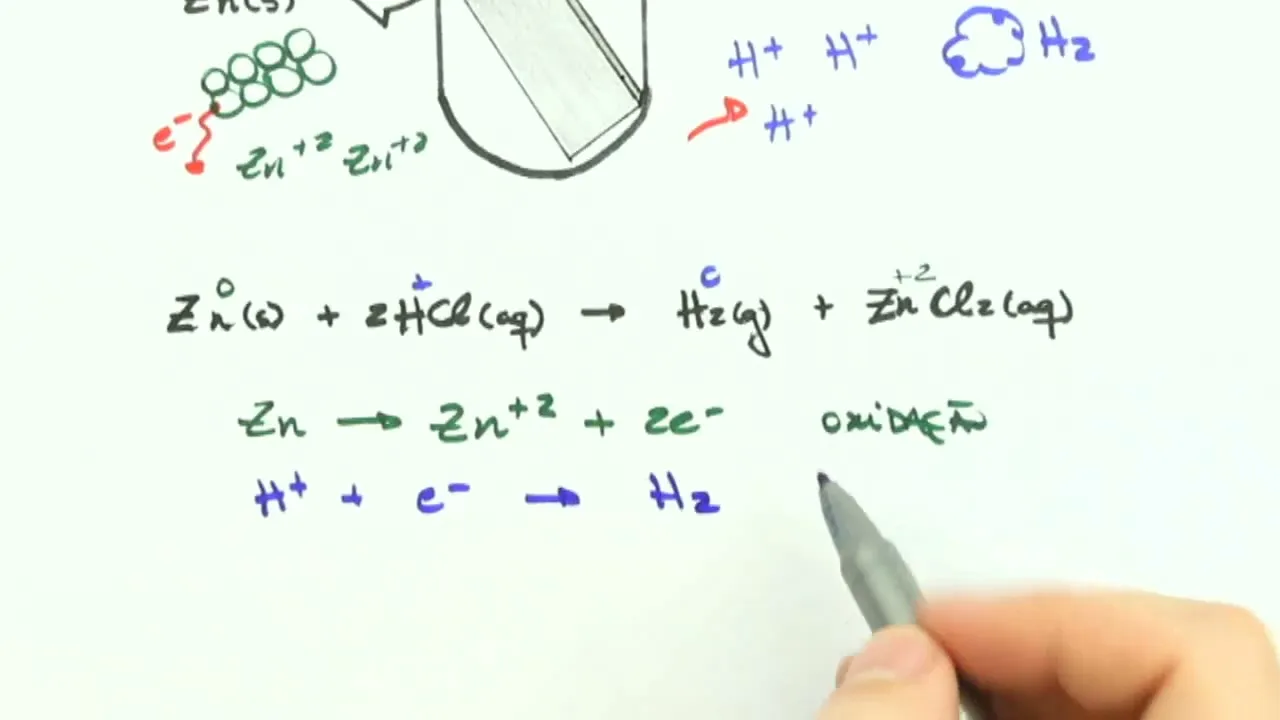 Zn(s)
H⁺ H⁺ H₂
H⁺
e⁻
Zn⁺² Zn⁺²
0 + 0 +2
Zn(s) + 2HCl(aq) → H₂(g) + ZnCl₂(aq)
Zn → Zn⁺² + 2e⁻ OXIDAÇÃO
H⁺ + e⁻ → H₂